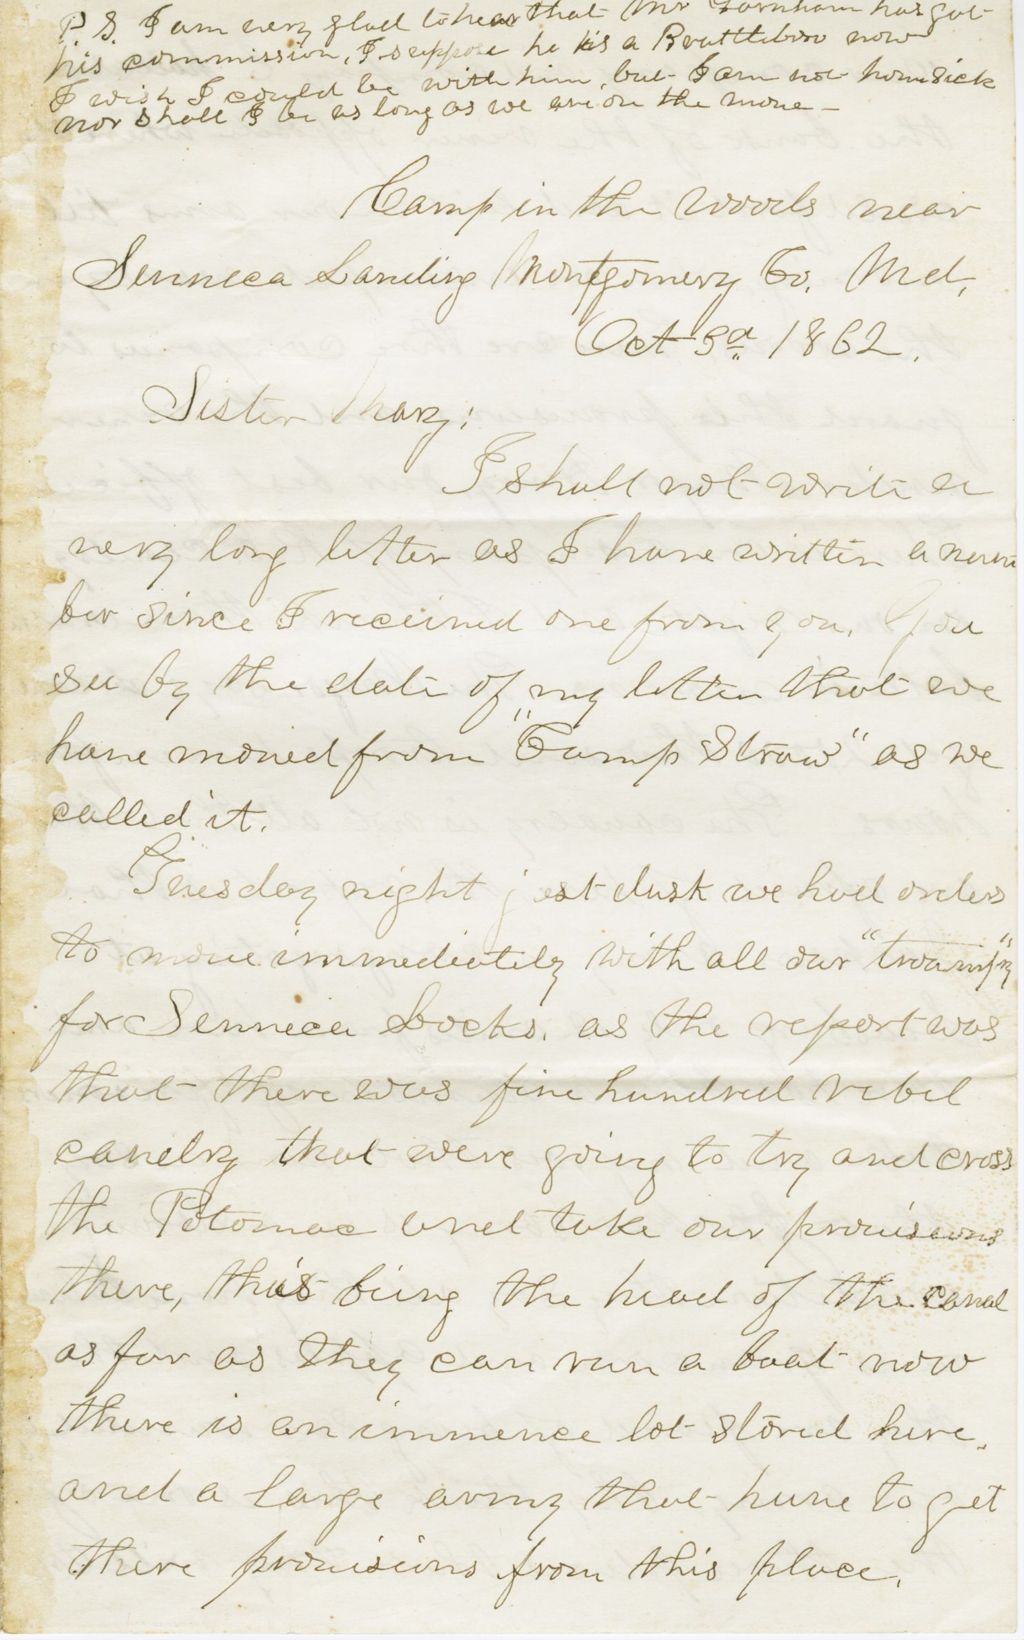 P.S. I am very glad to hear that Mr Farnham has got
his commission, I suppose he is a Brattleboro now
I wish I could be with him, but I am not homsick
nor shall I be as long as we are on the move -
Camp in the woods near
Senneca Landing Montgomery Co. Md.
Oct 3d 1862.
Sister Mary:
I shall not write a
very long letter as I have written a num
ber since I received one from you. You
see by the date of my letter that we
have moved from "Camp Straw" as we
called it.
Tuesday night just dusk we had orders
to move immediately with all our
for Senneca Locks. as the report was
that there was five hundred rebel
cavelry that were going to try and cross
the Potomac and take our provisions
there, this being the head of the canal
as far as they can run a boat now
there is an immence lot stored here.
and a large army that have to get
there provisions from this place.